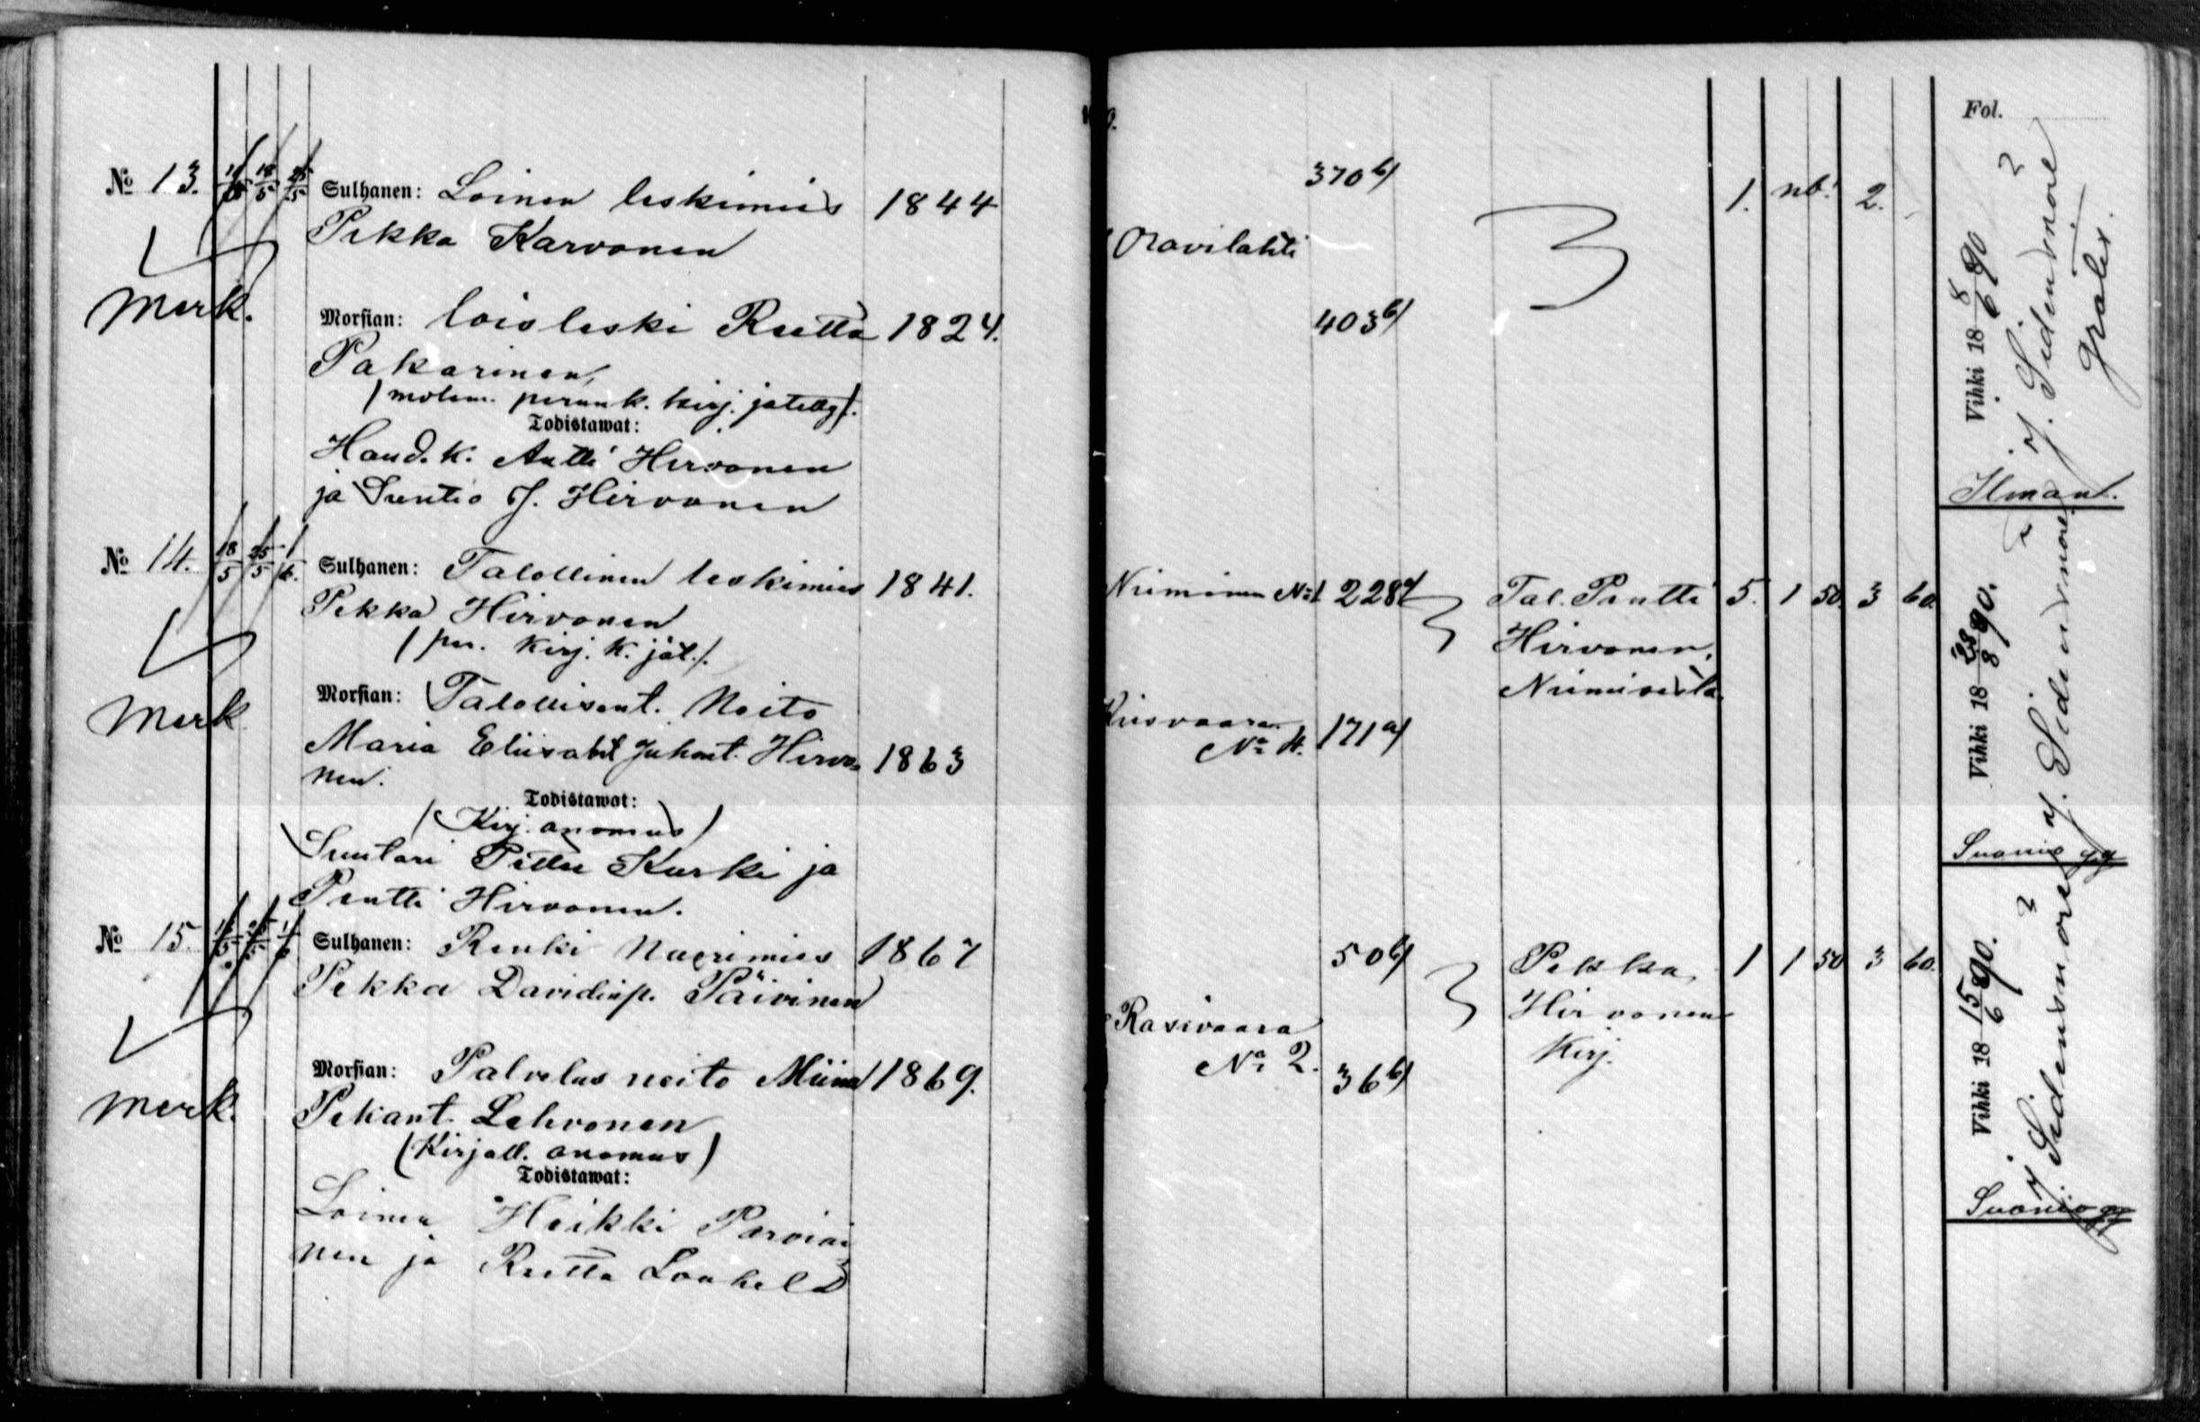 № 13. 11/5 18/5 25/5 Sulhanen: Loinen leskimies 1844
Pekka Karvonen
Merk.
Morsian: loisleski Reetta 1824.
Pakarinen,
(molem. perunk. kirj. jätetty).
Todistawat:
Haud. k. Antti Hirvonen
ja Suntio J. Hirvonen
№ 14. 18/5 25/5 1/6. Sulhanen: Talollinen leskimies 1841.
Pekka Hirvonen
(per. kirj. k. jät.).
Merk
Morsian: Talollisent. Neito
Maria Eliisabet Juhont. Hirvo= 1863
nen.
Todistawat:
(Kirj. anomus)
Suutari Petter Kurki ja
Pentti Hirvonen.
№ 15. 18/5 25/5 1/6 Sulhanen: Renki Nuorimies 1867
Pekka Davidinp. Päivinen
Merk.
Morsian: Palvelus neito Miina 1869.
Pekant. Lehvonen
(Kirjall. anomus)
Todistawat:
Loinen Heikki Parviai
nen ja Reetta Louhela
Fol.
370 b) 1. nb! 2.
Oravilahti
403 b)
Vihki 18 8/6 90
J. Sidensnore
gratis.
Ilmant.
Niiminen № 1 228 Tal. Pentti 5. 1 50. 3 60.
Hirvonen,
Niimiselta
Kiisvaara
№ 4. 171 a)
Vihki 18 28/8 90.
J. Sidensnore
Suonio
50 b) Pekka 1 1 50 3 60.
Hirvonen
Kirj.
Rasivaara
№ 2. 36 b)
Vihki 18 15/6 90.
J. Sidensnore
Suonio